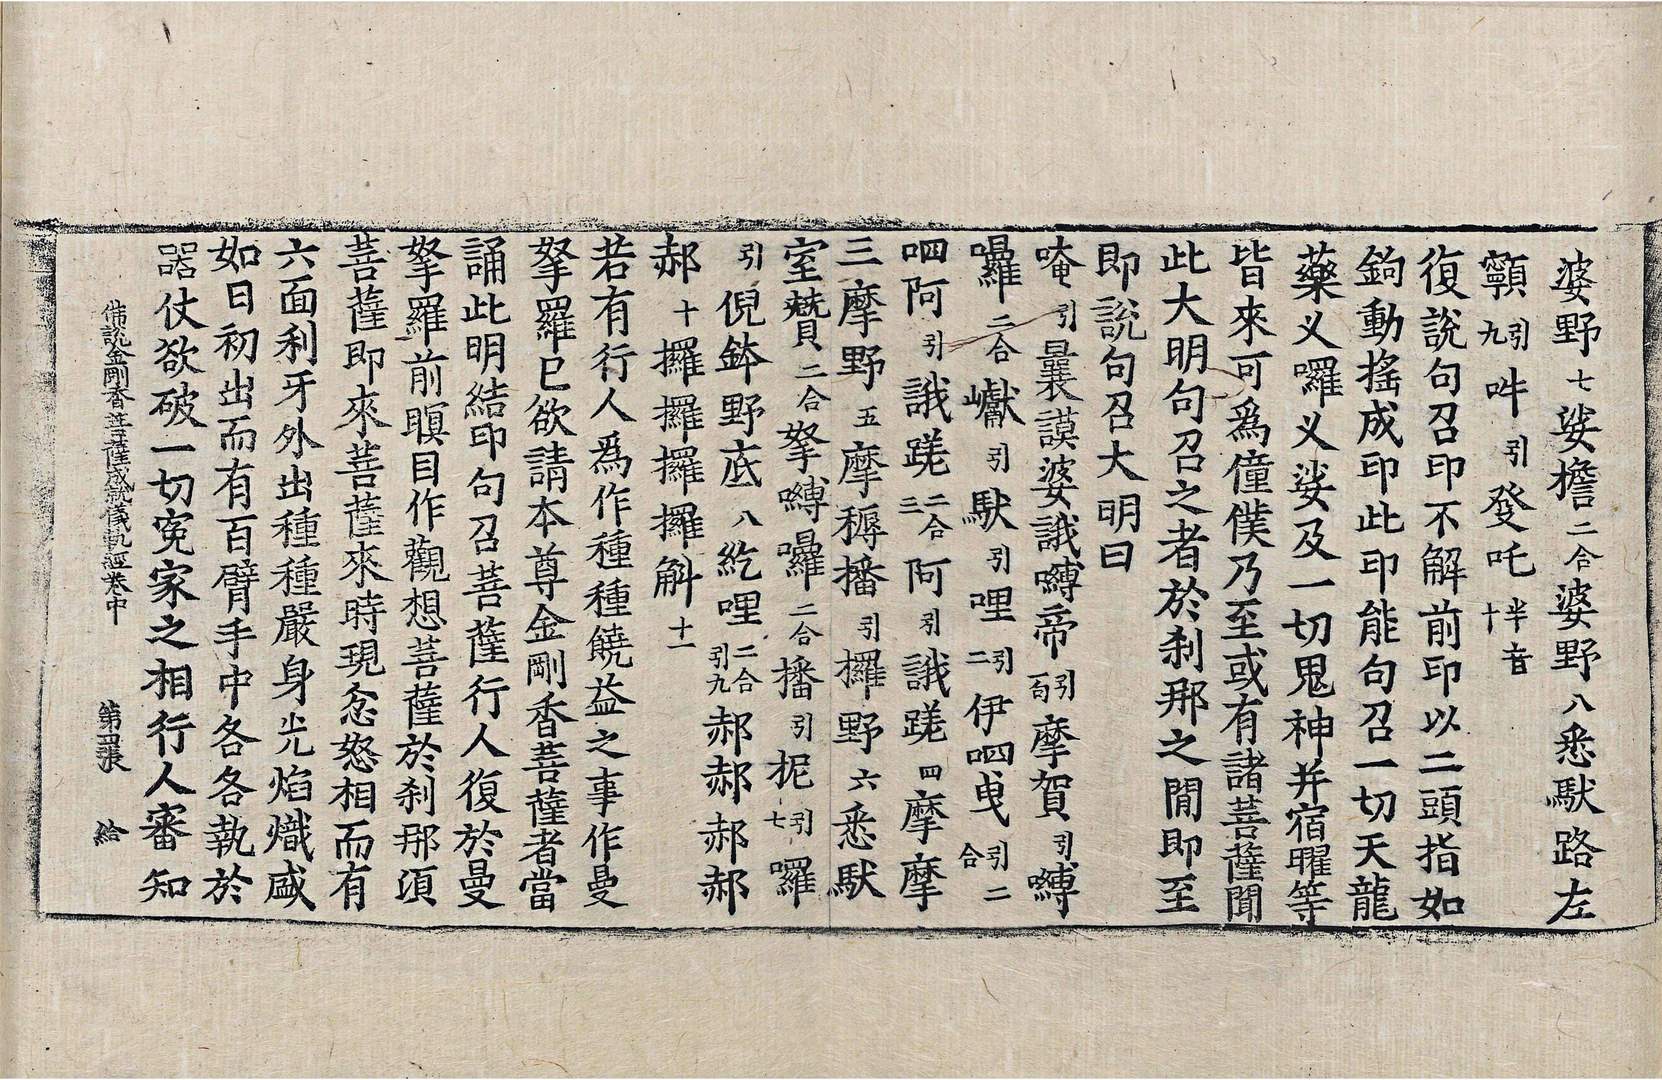 婆野七娑擔二合婆野八悉馱路左
㘑引九吽引癹吒半音十
復說句召印不解前印以二頭指如
鉤動搖成印此印能句召一切天龍
藥义囉义娑及一切鬼神并宿曜等
皆來可爲僮僕乃至或有諸菩薩聞
此大明句召之者於刹那之間即至
即說句召大明曰
唵引曩謨婆誐嚩帝引一句摩賀引嚩
囉二合巘引馱引哩引二伊呬曳引二合
呬阿引誐蹉二合三阿引誐蹉四摩摩
三摩野五摩耨播引攞野六悉馱
室贊二合拏嚩囉二合播引抳引七囉
引倪鉢野底八紇哩二合引九郝郝郝郝
郝十攞攞攞攞斛十一
若有行人爲作種種饒益之事作曼
拏羅已欲請本尊金剛香菩薩者當
誦此明結印句召菩薩行人復於曼
拏羅前瞑目作觀想菩薩於刹那須
菩薩即來菩薩來時現忿怒相而有
六面利牙外出種種嚴身光焰熾盛
如日初出而有百臂手中各各執於
器仗欲破一切寃家之相行人審知
佛說金剛香菩薩成就儀軌經卷中 第四張 給